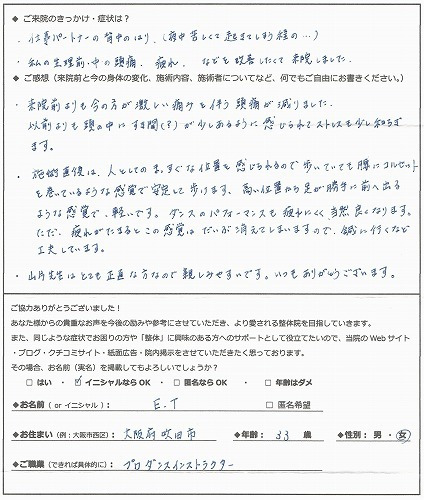 ◆ご来院のきっかけ・症状は?
・仕事パートナーの背中のはり。(夜中苦しくて起きてしまう程の…)
・私の生理前・中の頭痛、疲れ、などを改善したくて来院しました。
◆ご感想(来院前と今の身体の変化、施術内容、施術者についてなど、何でもご自由にお書きください。)
・来院前よりも今の方が激しい痛みを伴う頭痛が減りました。
以前よりも頭の中にすき間(?)が少しあるように感じられてストレスも少し和らぎ
ます。
・施術直後は、人としてのまっすぐな位置を感じられるので歩いていても腰にコルセット
を巻いているような感覚で安定して歩けます。高い位置から足が勝手に前へ出る
ような感覚で、軽いです。ダンスのパフォーマンスも疲れにくく当然良くなります。
ただ、疲れがたまるとこの感覚はだいぶ消えてしまいますので、鍼に行くなど
工夫しています。
・山片先生はとても正直な方なので親しみやすいです。いつもありがとうございます。
ご協力ありがとうございました!
あなた様からの貴重なお声を今後の励みや参考にさせていただき、より愛される整体院を目指していきます。
また、同じような症状でお困りの方や「整体」に興味のある方へのサポートとして役立てたいので、当院のWebサイト
・ブログ・クチコミサイト・紙面広告・院内掲示をさせていただきたく思っております。
その場合、お名前(実名)を掲載してもよろしいでしょうか?
□ はい ・ ☑ イニシャルなら OK ・ □ 匿名なら OK ・ □ 年齢はダメ
◆お名前(or イニシャル): E.T □ 匿名希望
◆お住まい(例:大阪市西区): 大阪府吹田市 ◆年齢: 33 歳 ◆性別:男・女
◆ご職業(できれば具体的に): プロダンスインストラクター